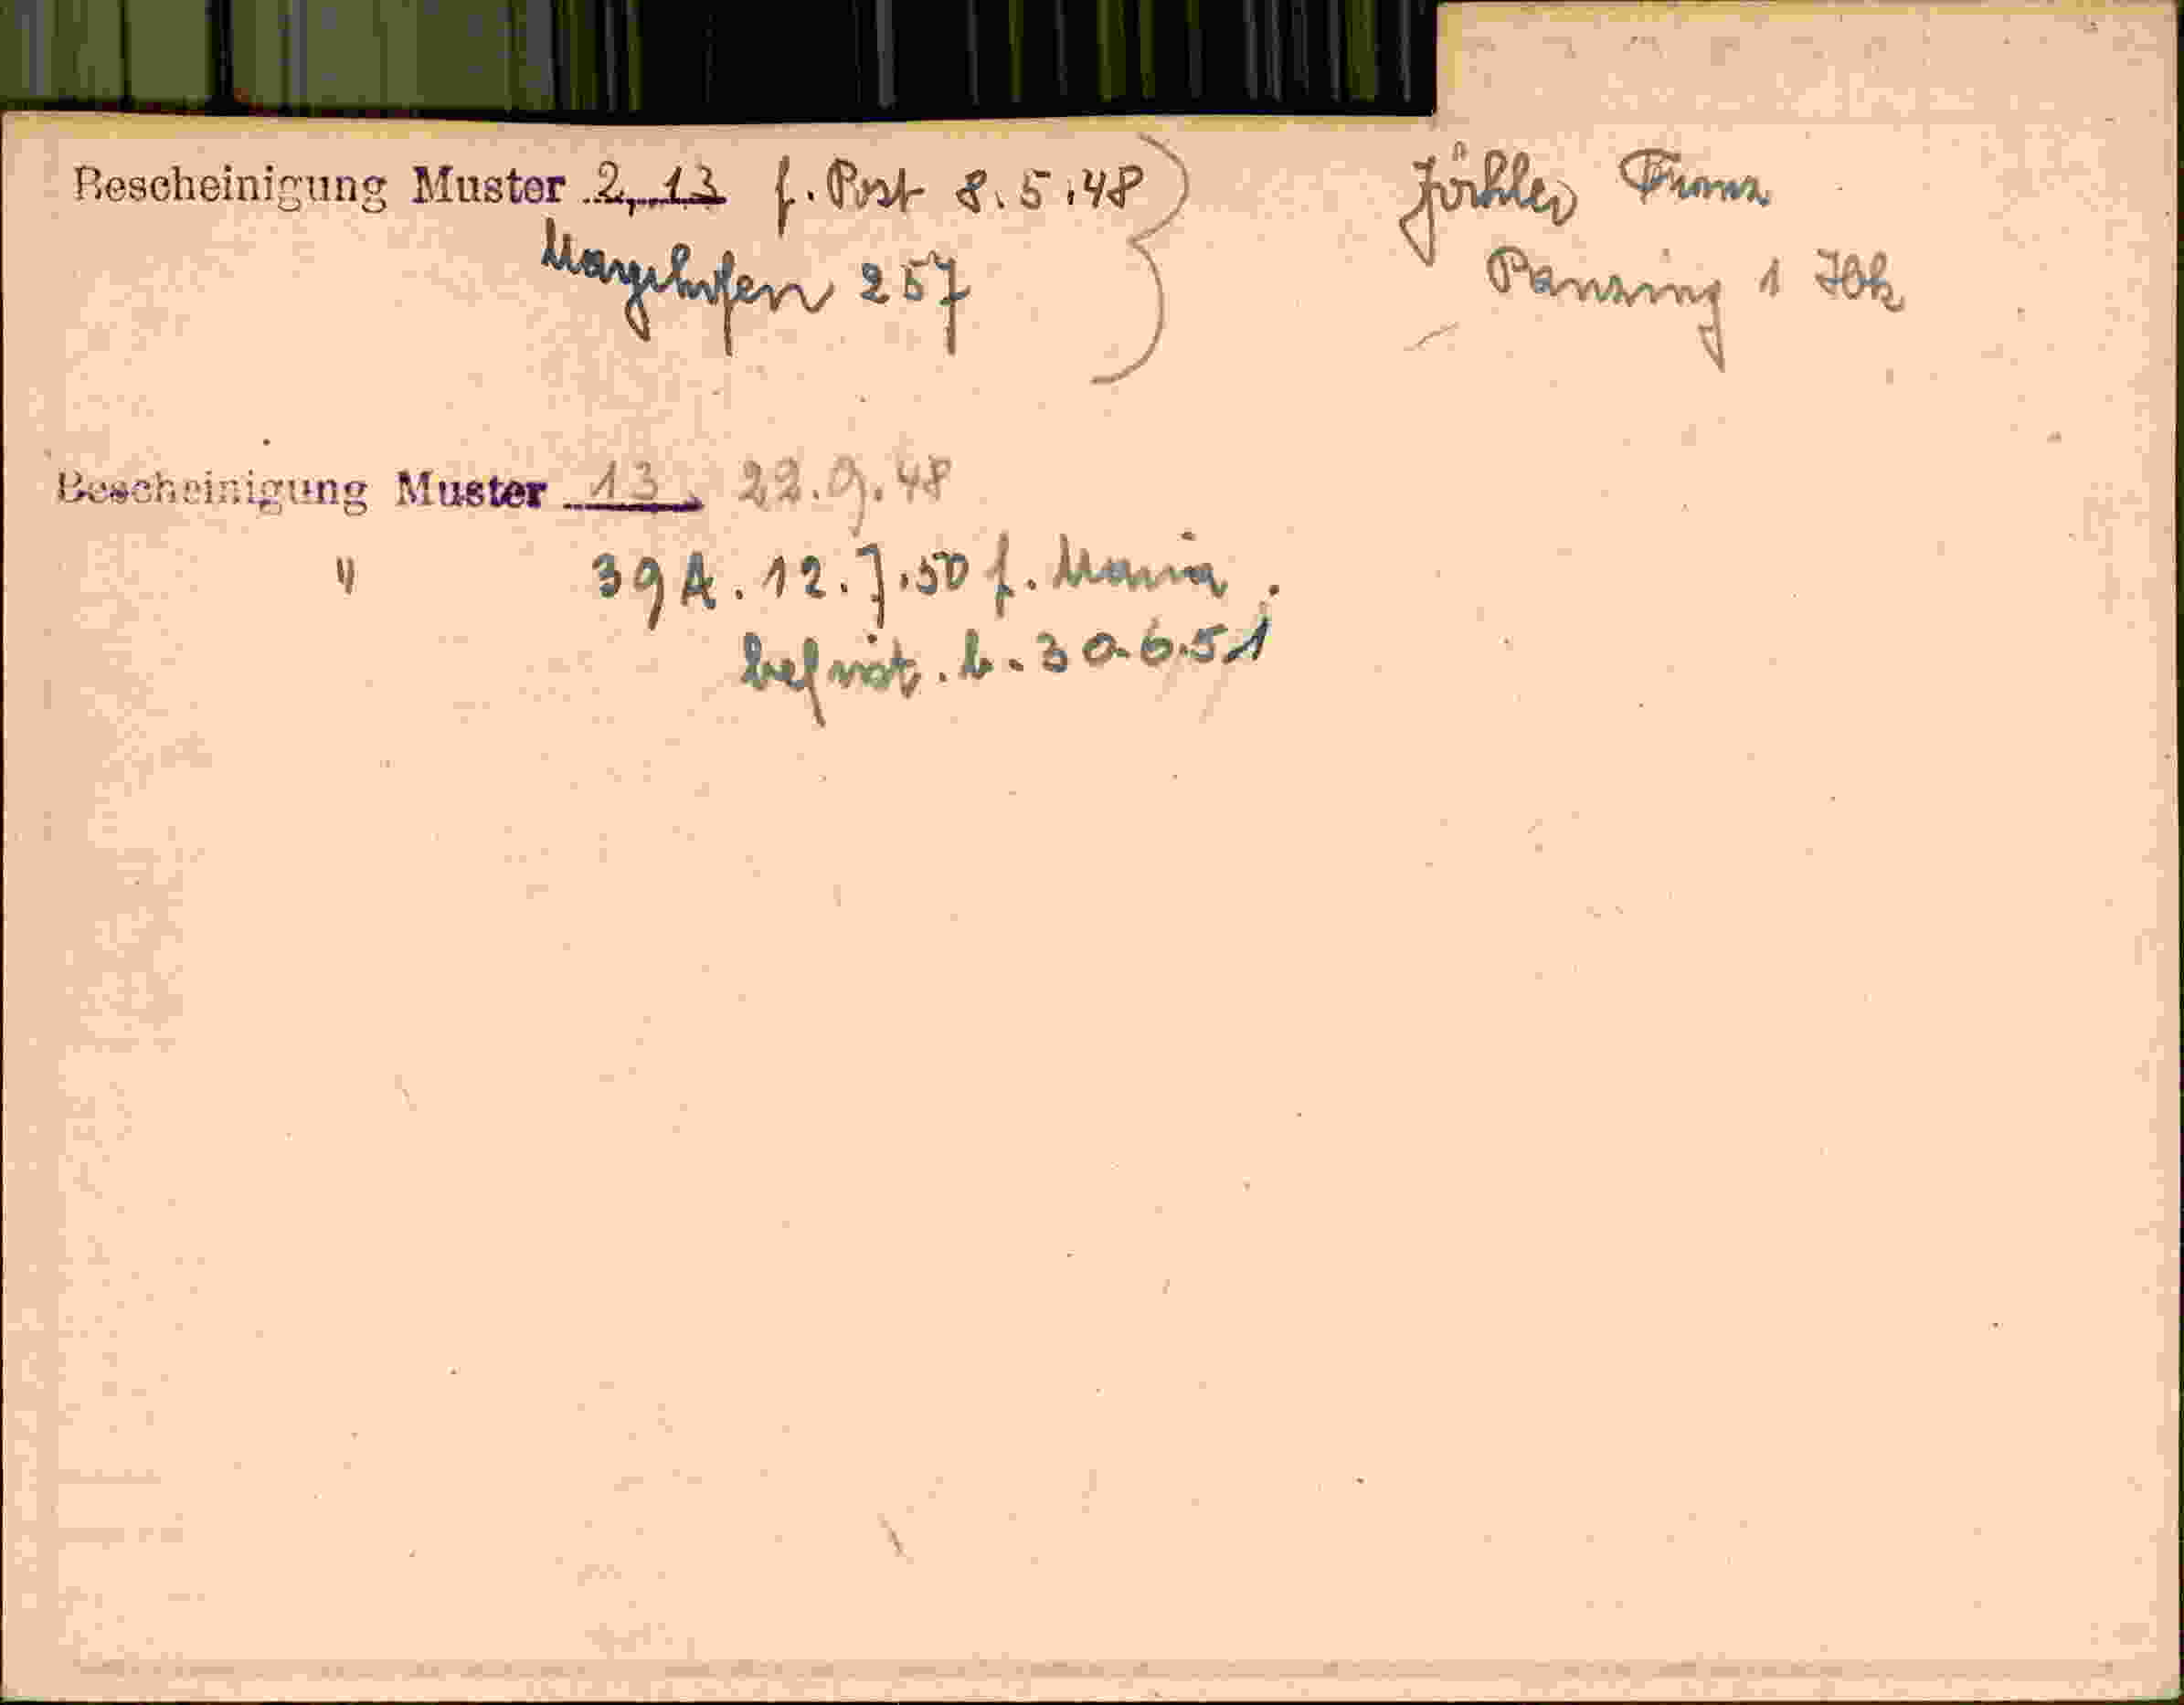 Bescheinigung Muster 2, 13 f. Post 8.5.48
257
Franz
1
Bescheinigung Muster 13. 22.9.48
" 39 A. 12.7.50 f. Maria.
befrist. b. 30.6.51